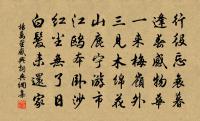 行役忘衰暮
逢春感物華
一来梅嶺外
三見木綿花
山鹿寧游市
江鷗本卧沙
紅塵無了日
白髮未還家
楊萬里感興